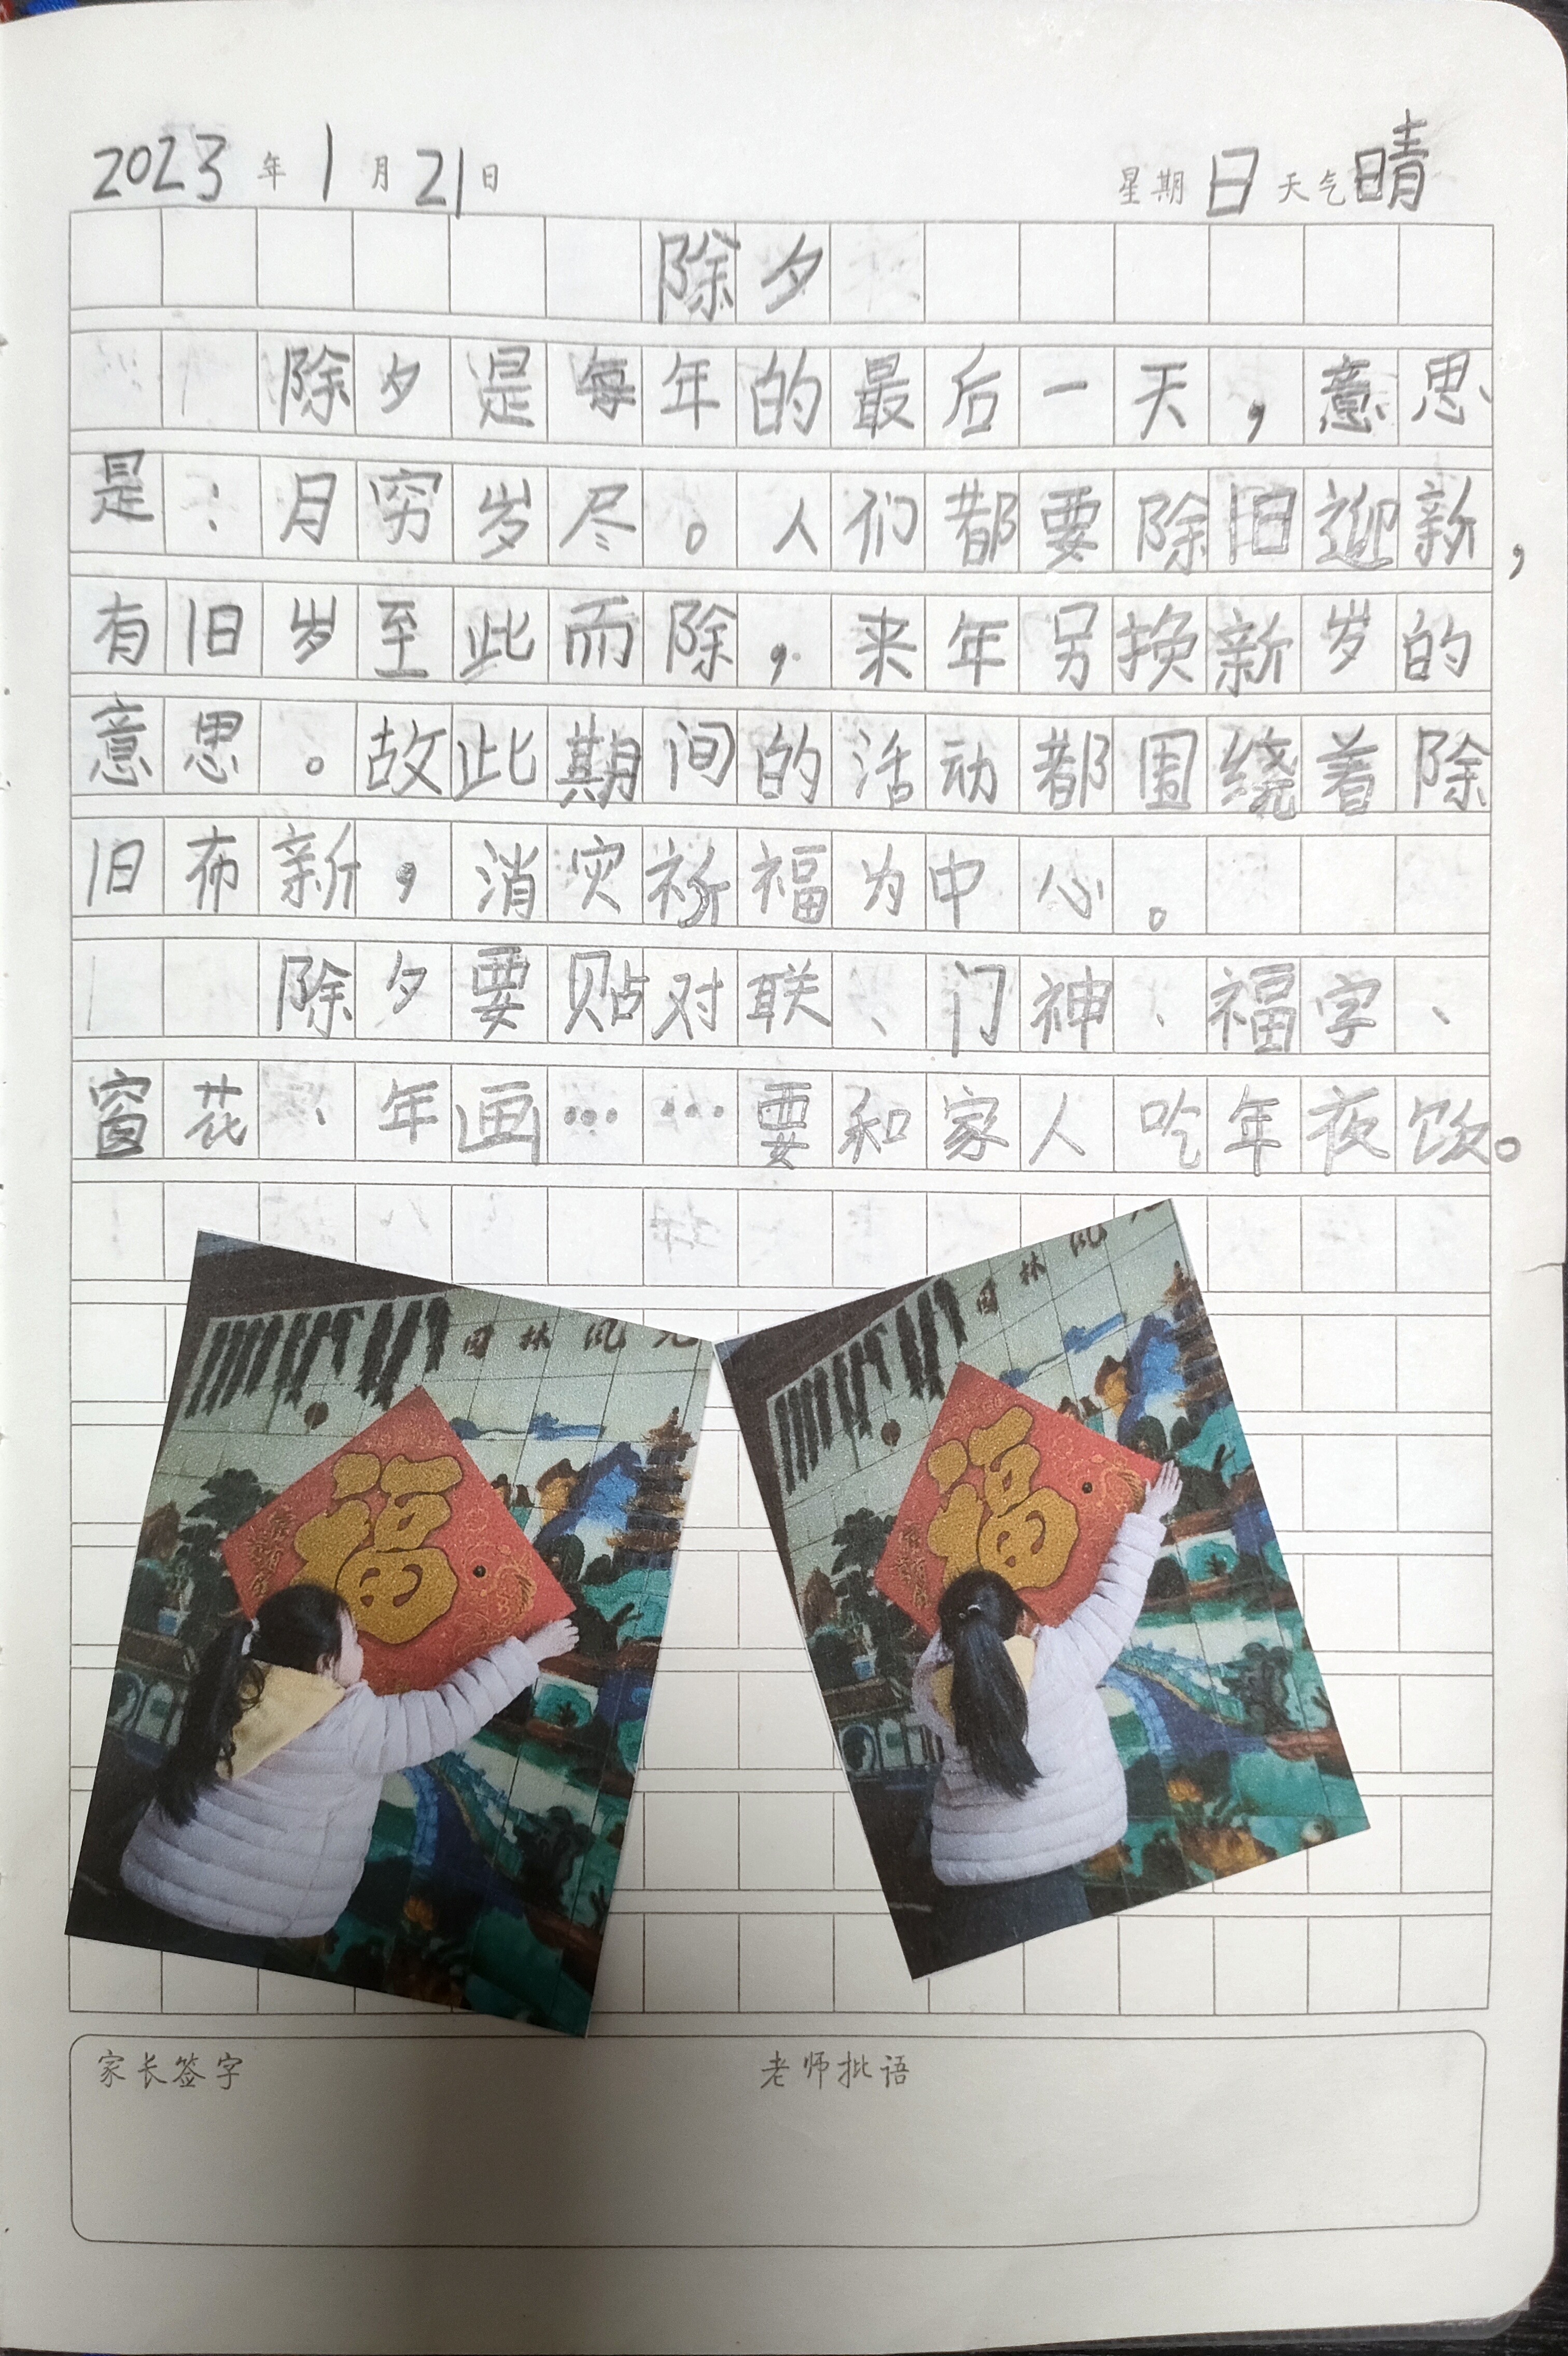 2023年1月21日 星期日 天气晴
除夕
除夕是每年的最后一天，意思
是：月穷岁尽。人们都要除旧迎新，
有旧岁至此而除，来年另换新岁的
意思。故此期间的活动都围绕着除
旧布新，消灾祈福为中心。
除夕要贴对联、门神、福字、
窗花、年画……要和家人吃年夜饭。
园林风光
福
园林风
福
家长签字 老师批语